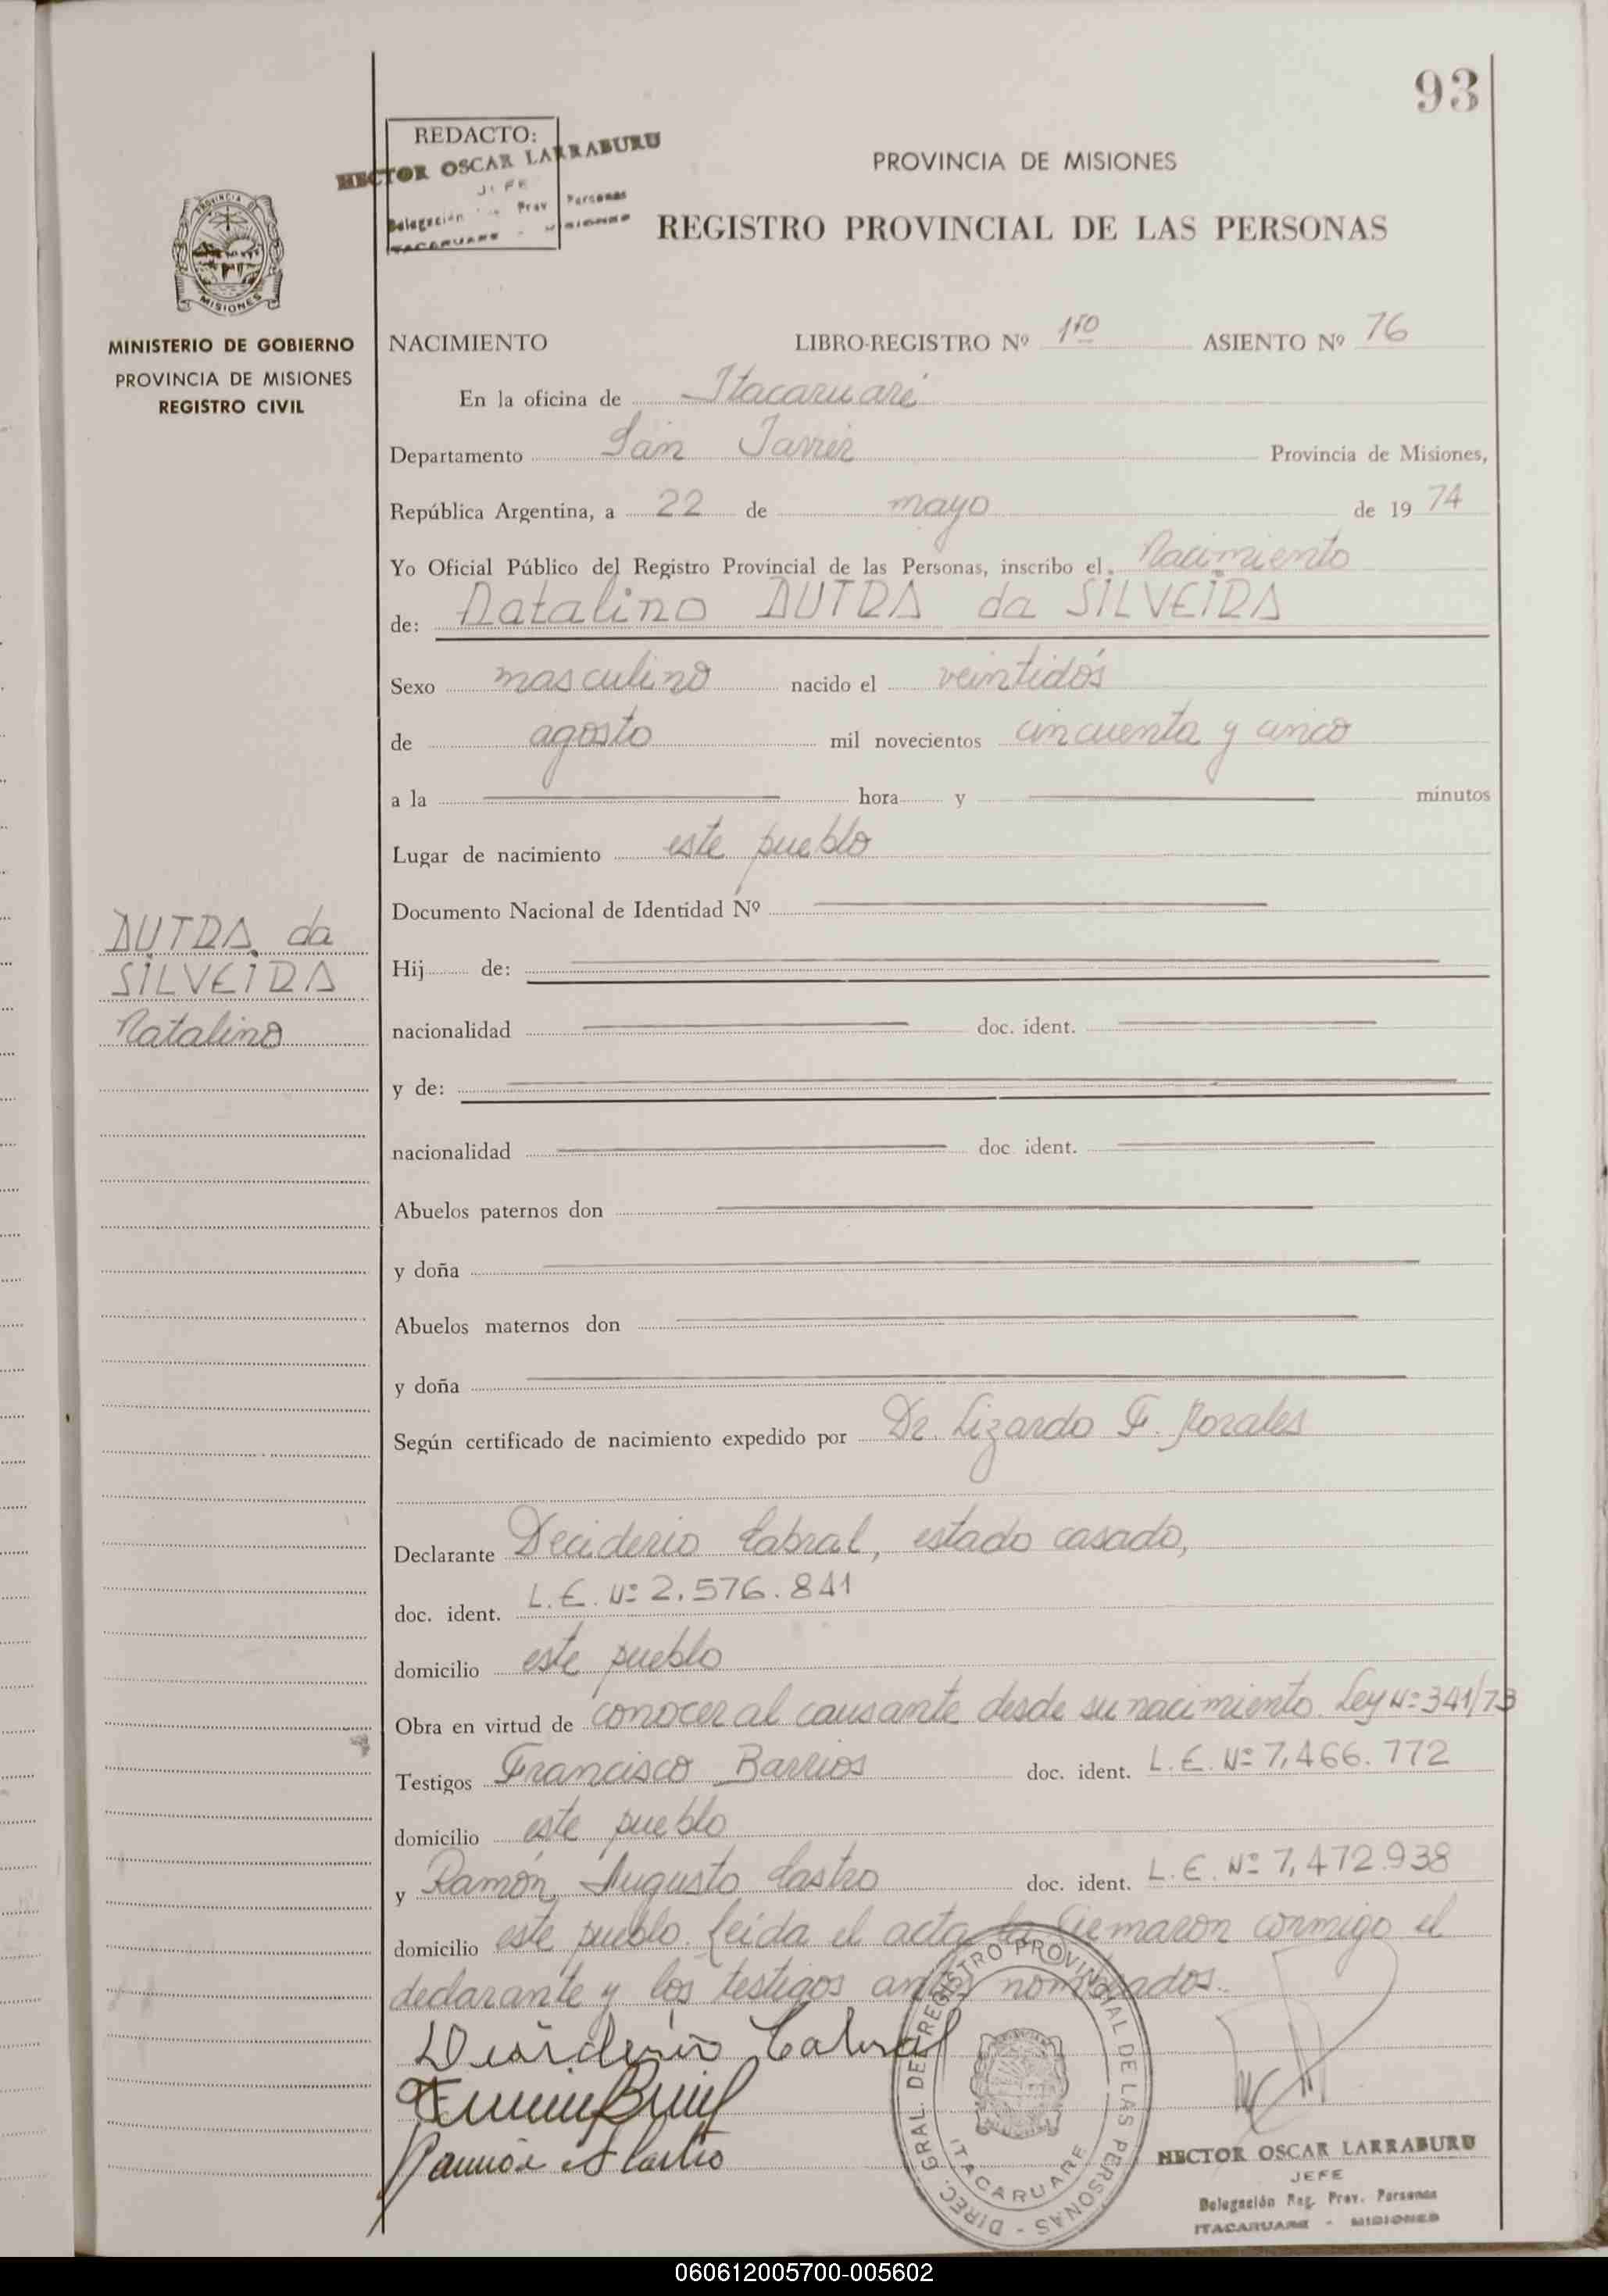 93
REDACTO:
HECTOR OSCAR LARRABURU
JEFE
Delegación Prov Personas
ITACARUARE - MISIONES
PROVINCIA DE MISIONES
REGISTRO PROVINCIAL DE LAS PERSONAS
PROVINCIA DE
MISIONES
MINISTERIO DE GOBIERNO
PROVINCIA DE MISIONES
REGISTRO CIVIL
NACIMIENTO LIBRO-REGISTRO Nº 1ro ASIENTO Nº 76
En la oficina de Itacaruaré
Departamento San Javier Provincia de Misiones,
República Argentina, a 22 de mayo de 19 74
Yo Oficial Público del Registro Provincial de las Personas, inscribo el Nacimiento
de: Natalino DUTRA da SILVEIRA
Sexo masculino nacido el veintidós
de agosto mil novecientos cincuenta y cinco
a la hora y minutos
Lugar de nacimiento este pueblo
Documento Nacional de Identidad Nº
DUTRA da
SILVEIRA
Natalino
Hij de:
nacionalidad doc. ident.
y de:
nacionalidad doc ident.
Abuelos paternos don
y doña
Abuelos maternos don
y doña
Según certificado de nacimiento expedido por Dr. Lizardo F.
Declarante Deciderio Cabral, estado casado,
doc. ident. L.E. Nº 2.576.841
domicilio este pueblo
Obra en virtud de conocer al causante desde su nacimiento. Ley Nº 341/73
Testigos Francisco Barrios doc. ident. L.E. Nº 7,466.772
domicilio este pueblo
y Ramón Augusto Castro doc. ident. L.E. Nº 7,472.938
domicilio este pueblo. Leida el acta la firmaron conmigo el
declarante y los testigos antes nombrados.
Deciderio Cabral
Ramón A Castro
DIREC. GRAL. DEL REGISTRO PROVINCIAL DE LAS PERSONAS -
ITACARUARE
HECTOR OSCAR LARRABURU
JEFE
Delegación Reg. Prov. Personas
ITACARUARE - MISIONES
060612005700-005602